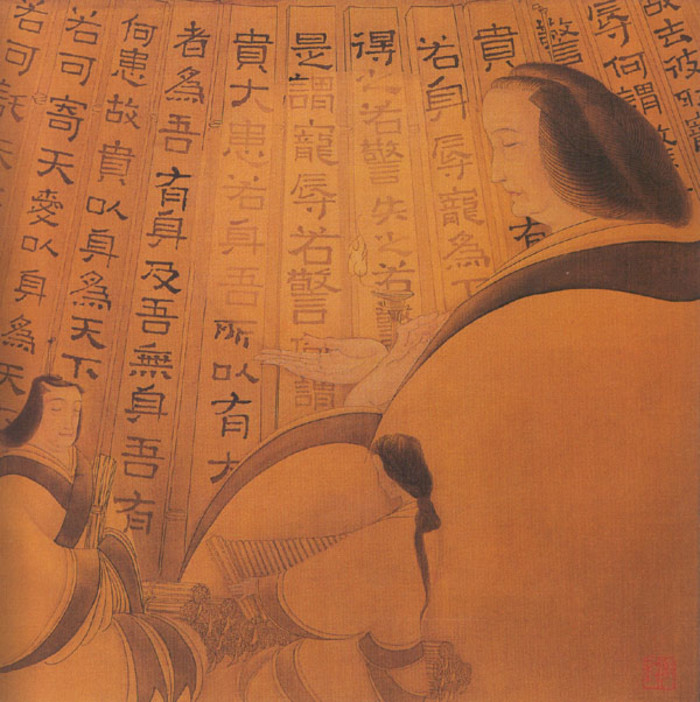 故去彼
辱何謂
警
貴 有
若身辱寵為下
得之若警失之若警
是謂寵辱若警何謂
貴大患若身吾所以有大
者為吾有身及吾無身吾有
何患故貴以身為天下
若可寄天愛以身為天
若可託天